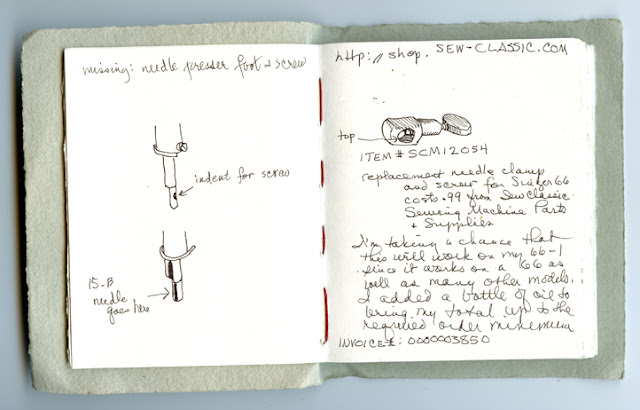 missing: needle presser foot + screw
indent for screw
15-B
needle
goes here
http://shop.SEW-CLASSIC.COM
top
ITEM # SCM12054
replacement needle clamp
and screw for Singer 66
costs .99 from Sew Classic
Sewing Machine Parts
+ Supplies
I'm taking a chance that
this will work on my 66-1
since it works on a 66 as
well as many other models.
I added a bottle of oil to
bring my total up to the
required order minemum
INVOICE#: 0000003850